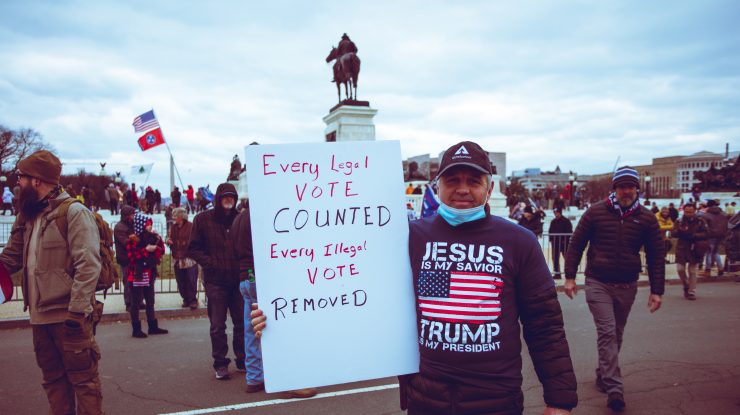 Every Legal
VOTE
COUNTED
Every Illegal
VOTE
REMOVED
JESUS
IS MY SAVIOR
TRUMP
IS MY PRESIDENT